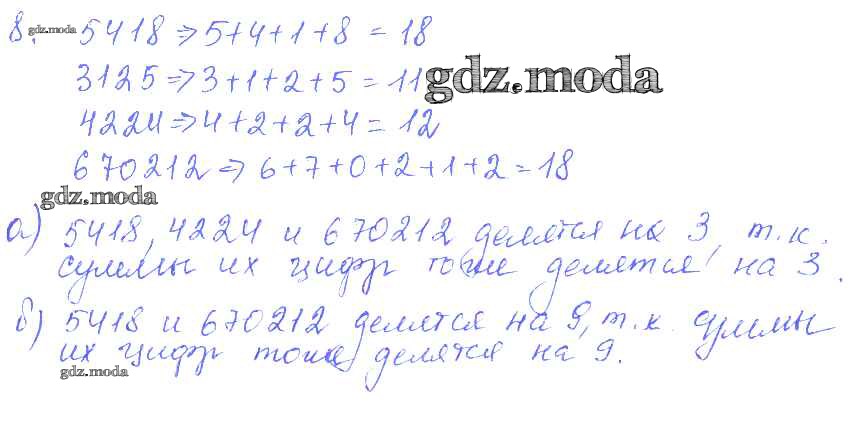 8. gdz.moda 5418 ⇒ 5+4+1+8 = 18
3125 ⇒ 3+1+2+5 = 11 gdz.moda
4224 ⇒ 4+2+2+4 = 12
670212 ⇒ 6+7+0+2+1+2 = 18
gdz.moda
а) 5418, 4224 и 670212 делятся на 3, т.к.
суммы их цифр тоже делятся на 3.
б) 5418 и 670212 делятся на 9, т.к. суммы
их цифр тоже делятся на 9.
gdz.moda